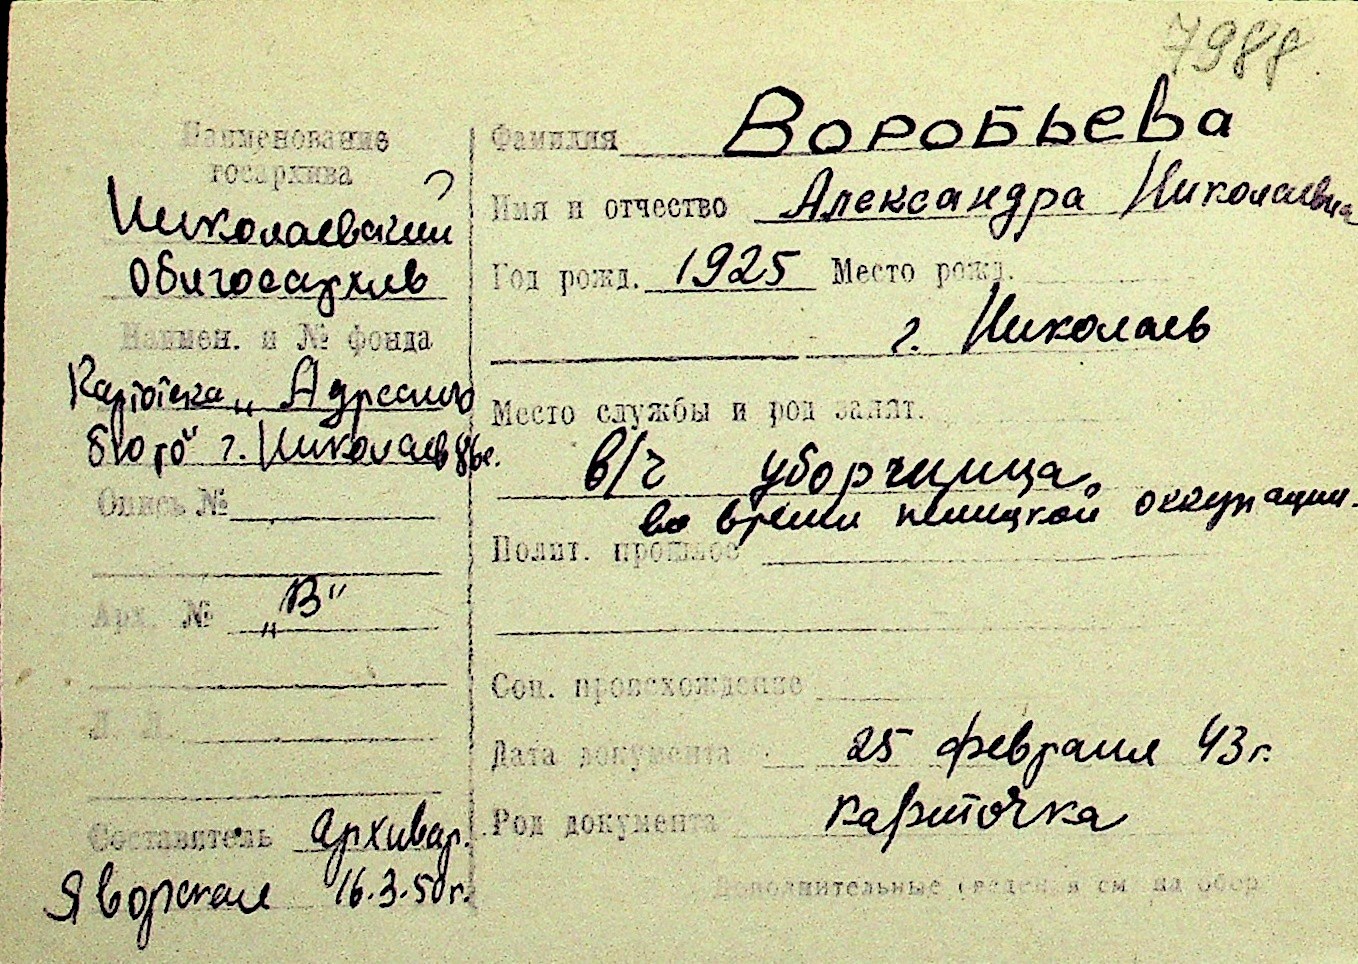 7988
Наименование
госархива
Николаевский
Облгосархив
Наимен. и № фонда
Картотека „Адресного
бюро" г. Николаев
Опись №
Арх. № „В"
Л. Л.
Составитель архивар.
Яворская 16.3.50г.
Фамилия Воробьева
Имя и отчество Александра Николаевна
Год рожд. 1925 Место рожд.
г. Николаев
Место службы и род занят.
в/ч уборчищца
во время немецкой оккупации.
Полит. прошлое
Соц. происхождение
Дата документа 25 февраля 43г.
Род документа карточка
Дополнительные сведения см. на обор